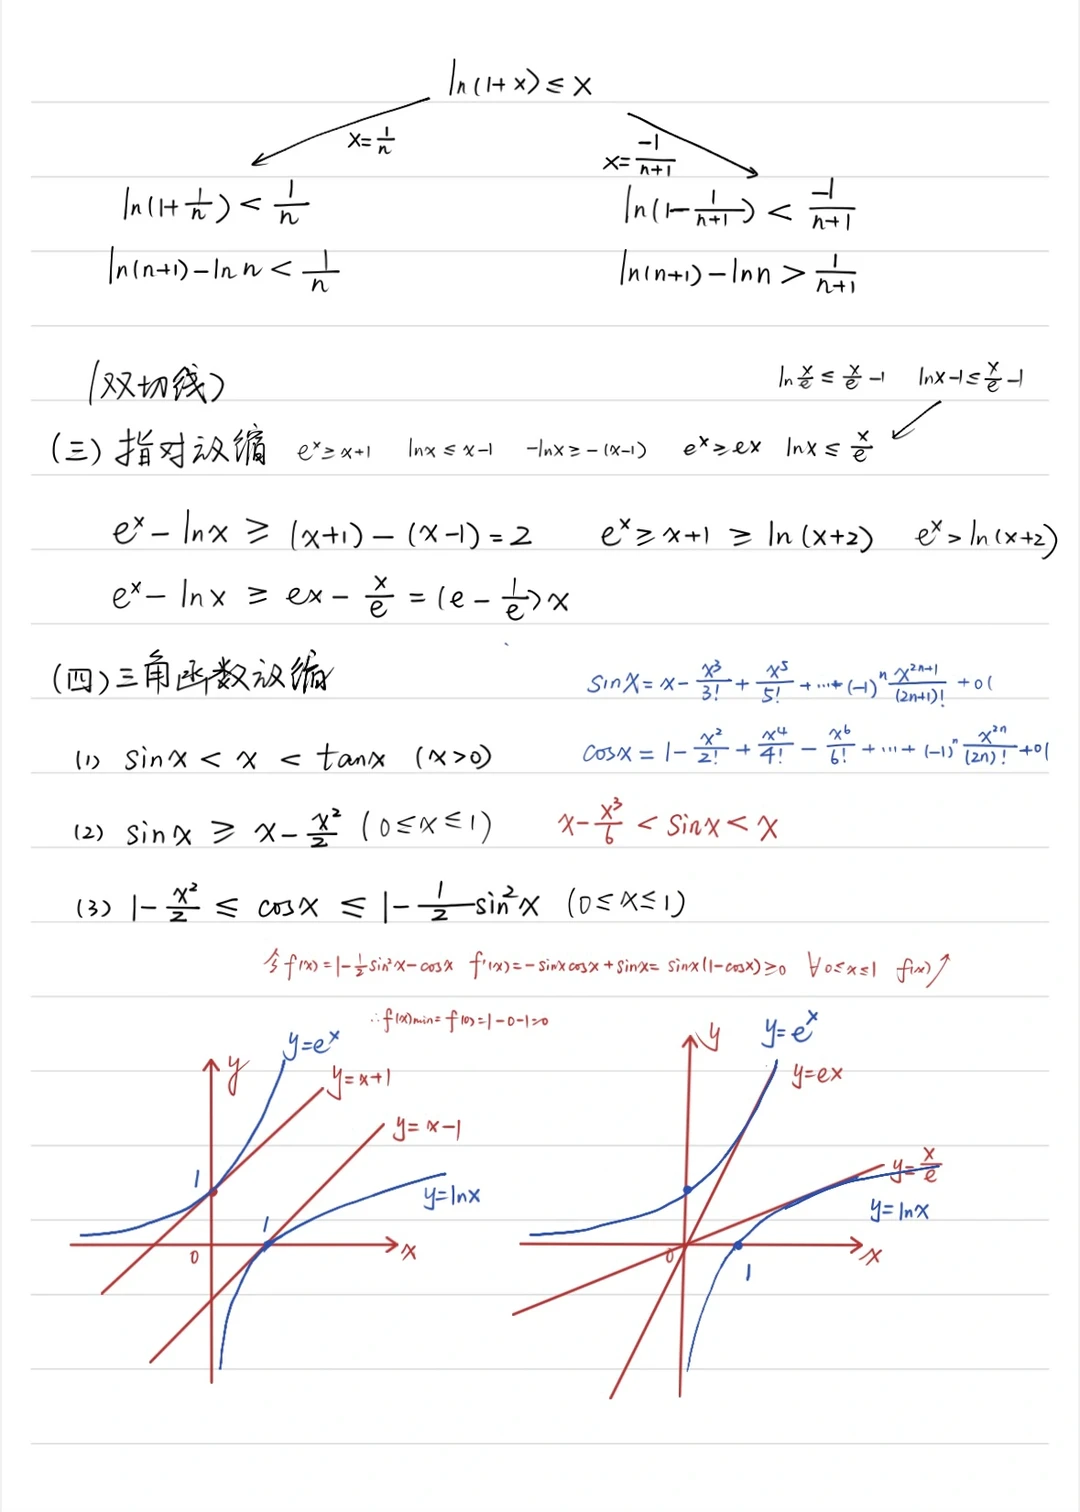 ln(1+x)≤x
x=1/n
x=-1/(n+1)
ln(1+1/n)<1/n
ln(1-1/(n+1))<-1/(n+1)
ln(n+1)-ln n<1/n
ln(n+1)-lnn>1/(n+1)
ln x/e ≤ x/e -1 lnx-1≤x/e-1
(双切线)
(三)指对放缩 e^x≥x+1 lnx≤x-1 -lnx≥-(x-1) e^x≥ex lnx≤x/e
e^x-lnx≥(x+1)-(x-1)=2 e^x≥x+1≥ln(x+2) e^x>ln(x+2)
e^x-lnx≥ex-x/e=(e-1/e)x
(四)三角函数放缩
sinx=x-x^3/3!+x^5/5!+…+(-1)^n x^(2n+1)/(2n+1)!+o(
cosx=1-x^2/2!+x^4/4!-x^6/6!+…+(-1)^n x^(2n)/(2n)!+o(
(1) sinx<x<tanx (x>0)
(2) sinx≥x-x^2/2 (0≤x≤1) x-x^3/6<sinx<x
(3) 1-x^2/2≤cosx≤1-1/2 sin^2x (0≤x≤1)
令f(x)=1-1/2 sin^2x-cosx f'(x)=-sinxcosx+sinx=sinx(1-cosx)≥0 ∀0≤x≤1 f(x)↗
∴f(x)min=f(0)=1-0-1=0
y=e^x
y
y=x+1
y=x-1
1
y=lnx
1
0
x
y
y=e^x
y=ex
y=x/e
y=lnx
0
x
1